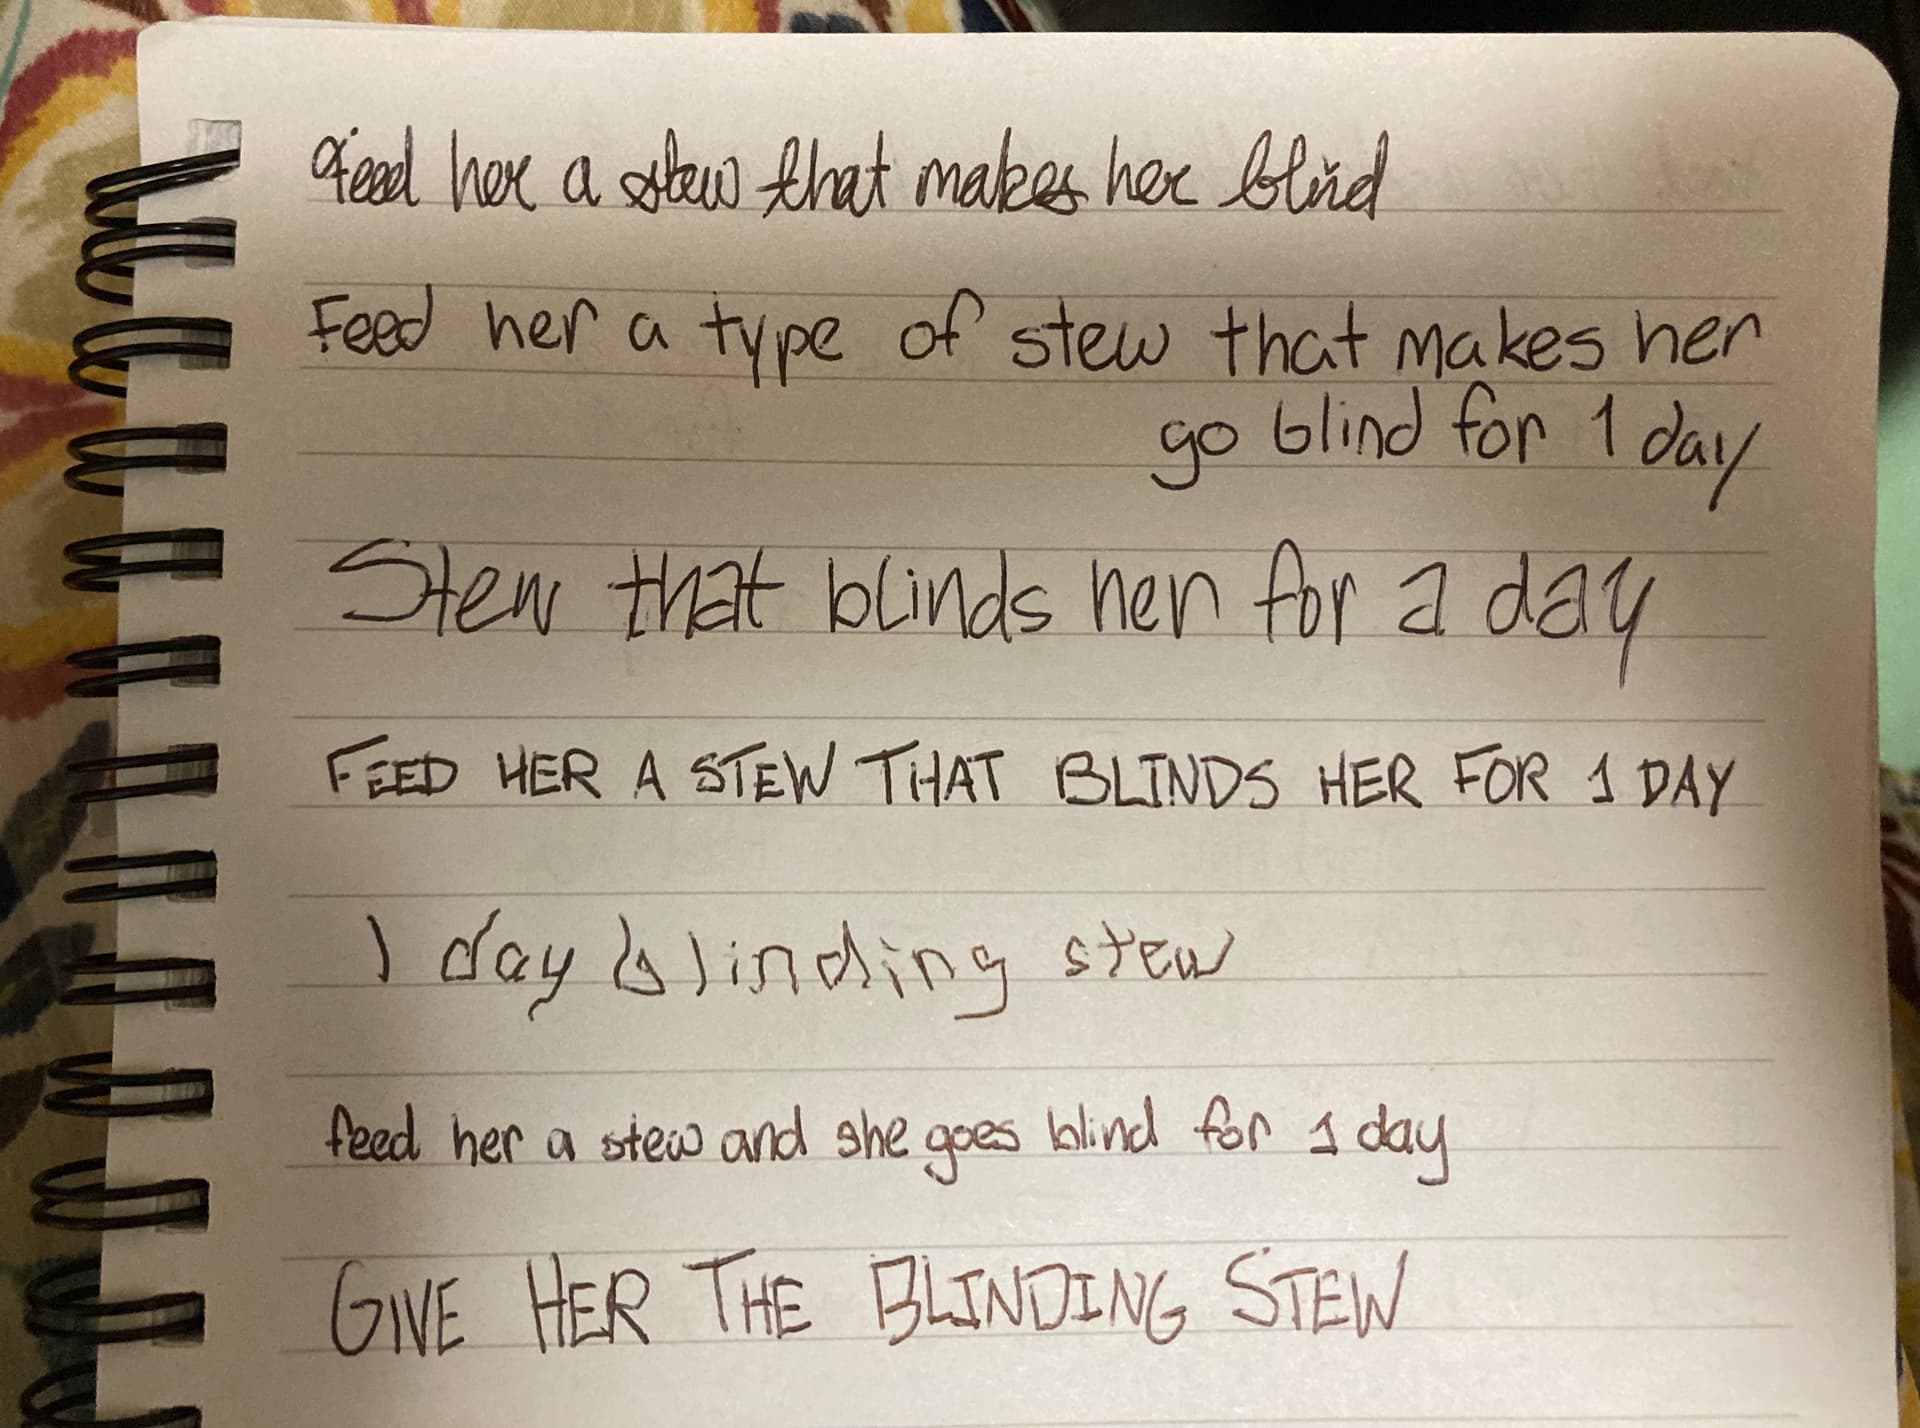 Feed her a stew that makes her blind
Feed her a type of stew that makes her
go blind for 1 day
Stew that blinds her for a day
FEED HER A STEW THAT BLINDS HER FOR 1 DAY
1 day blinding stew
feed her a stew and she goes blind for 1 day
GIVE HER THE BLINDING STEW